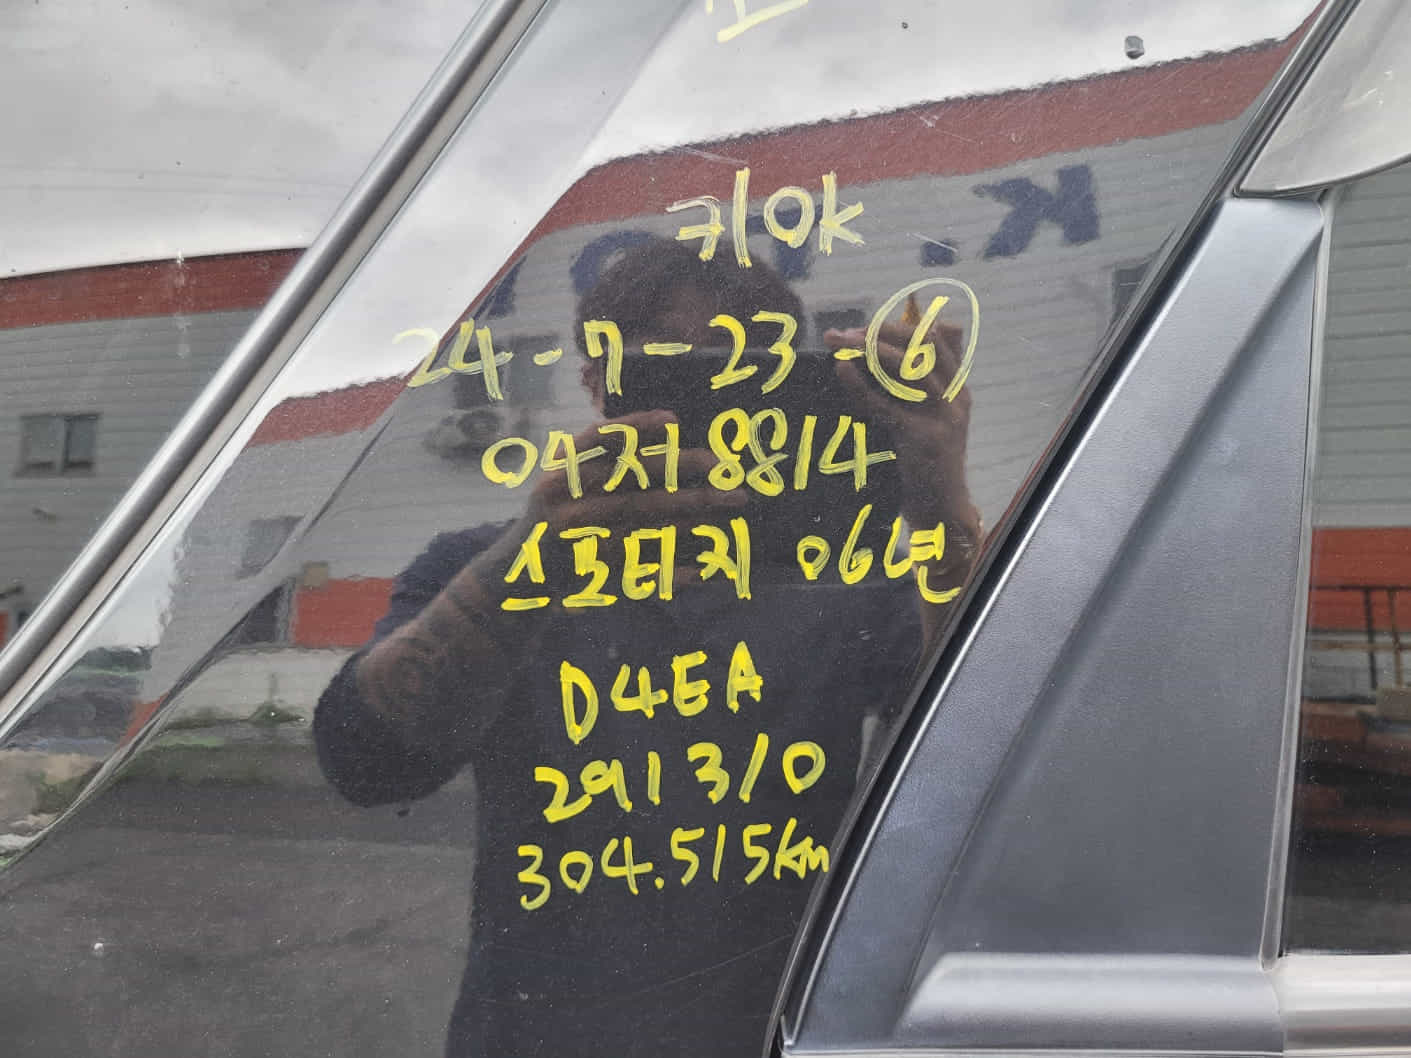 키ok
24-7-23-⑥
04저8814
스포티지 06년
D4EA
291310
304.515km